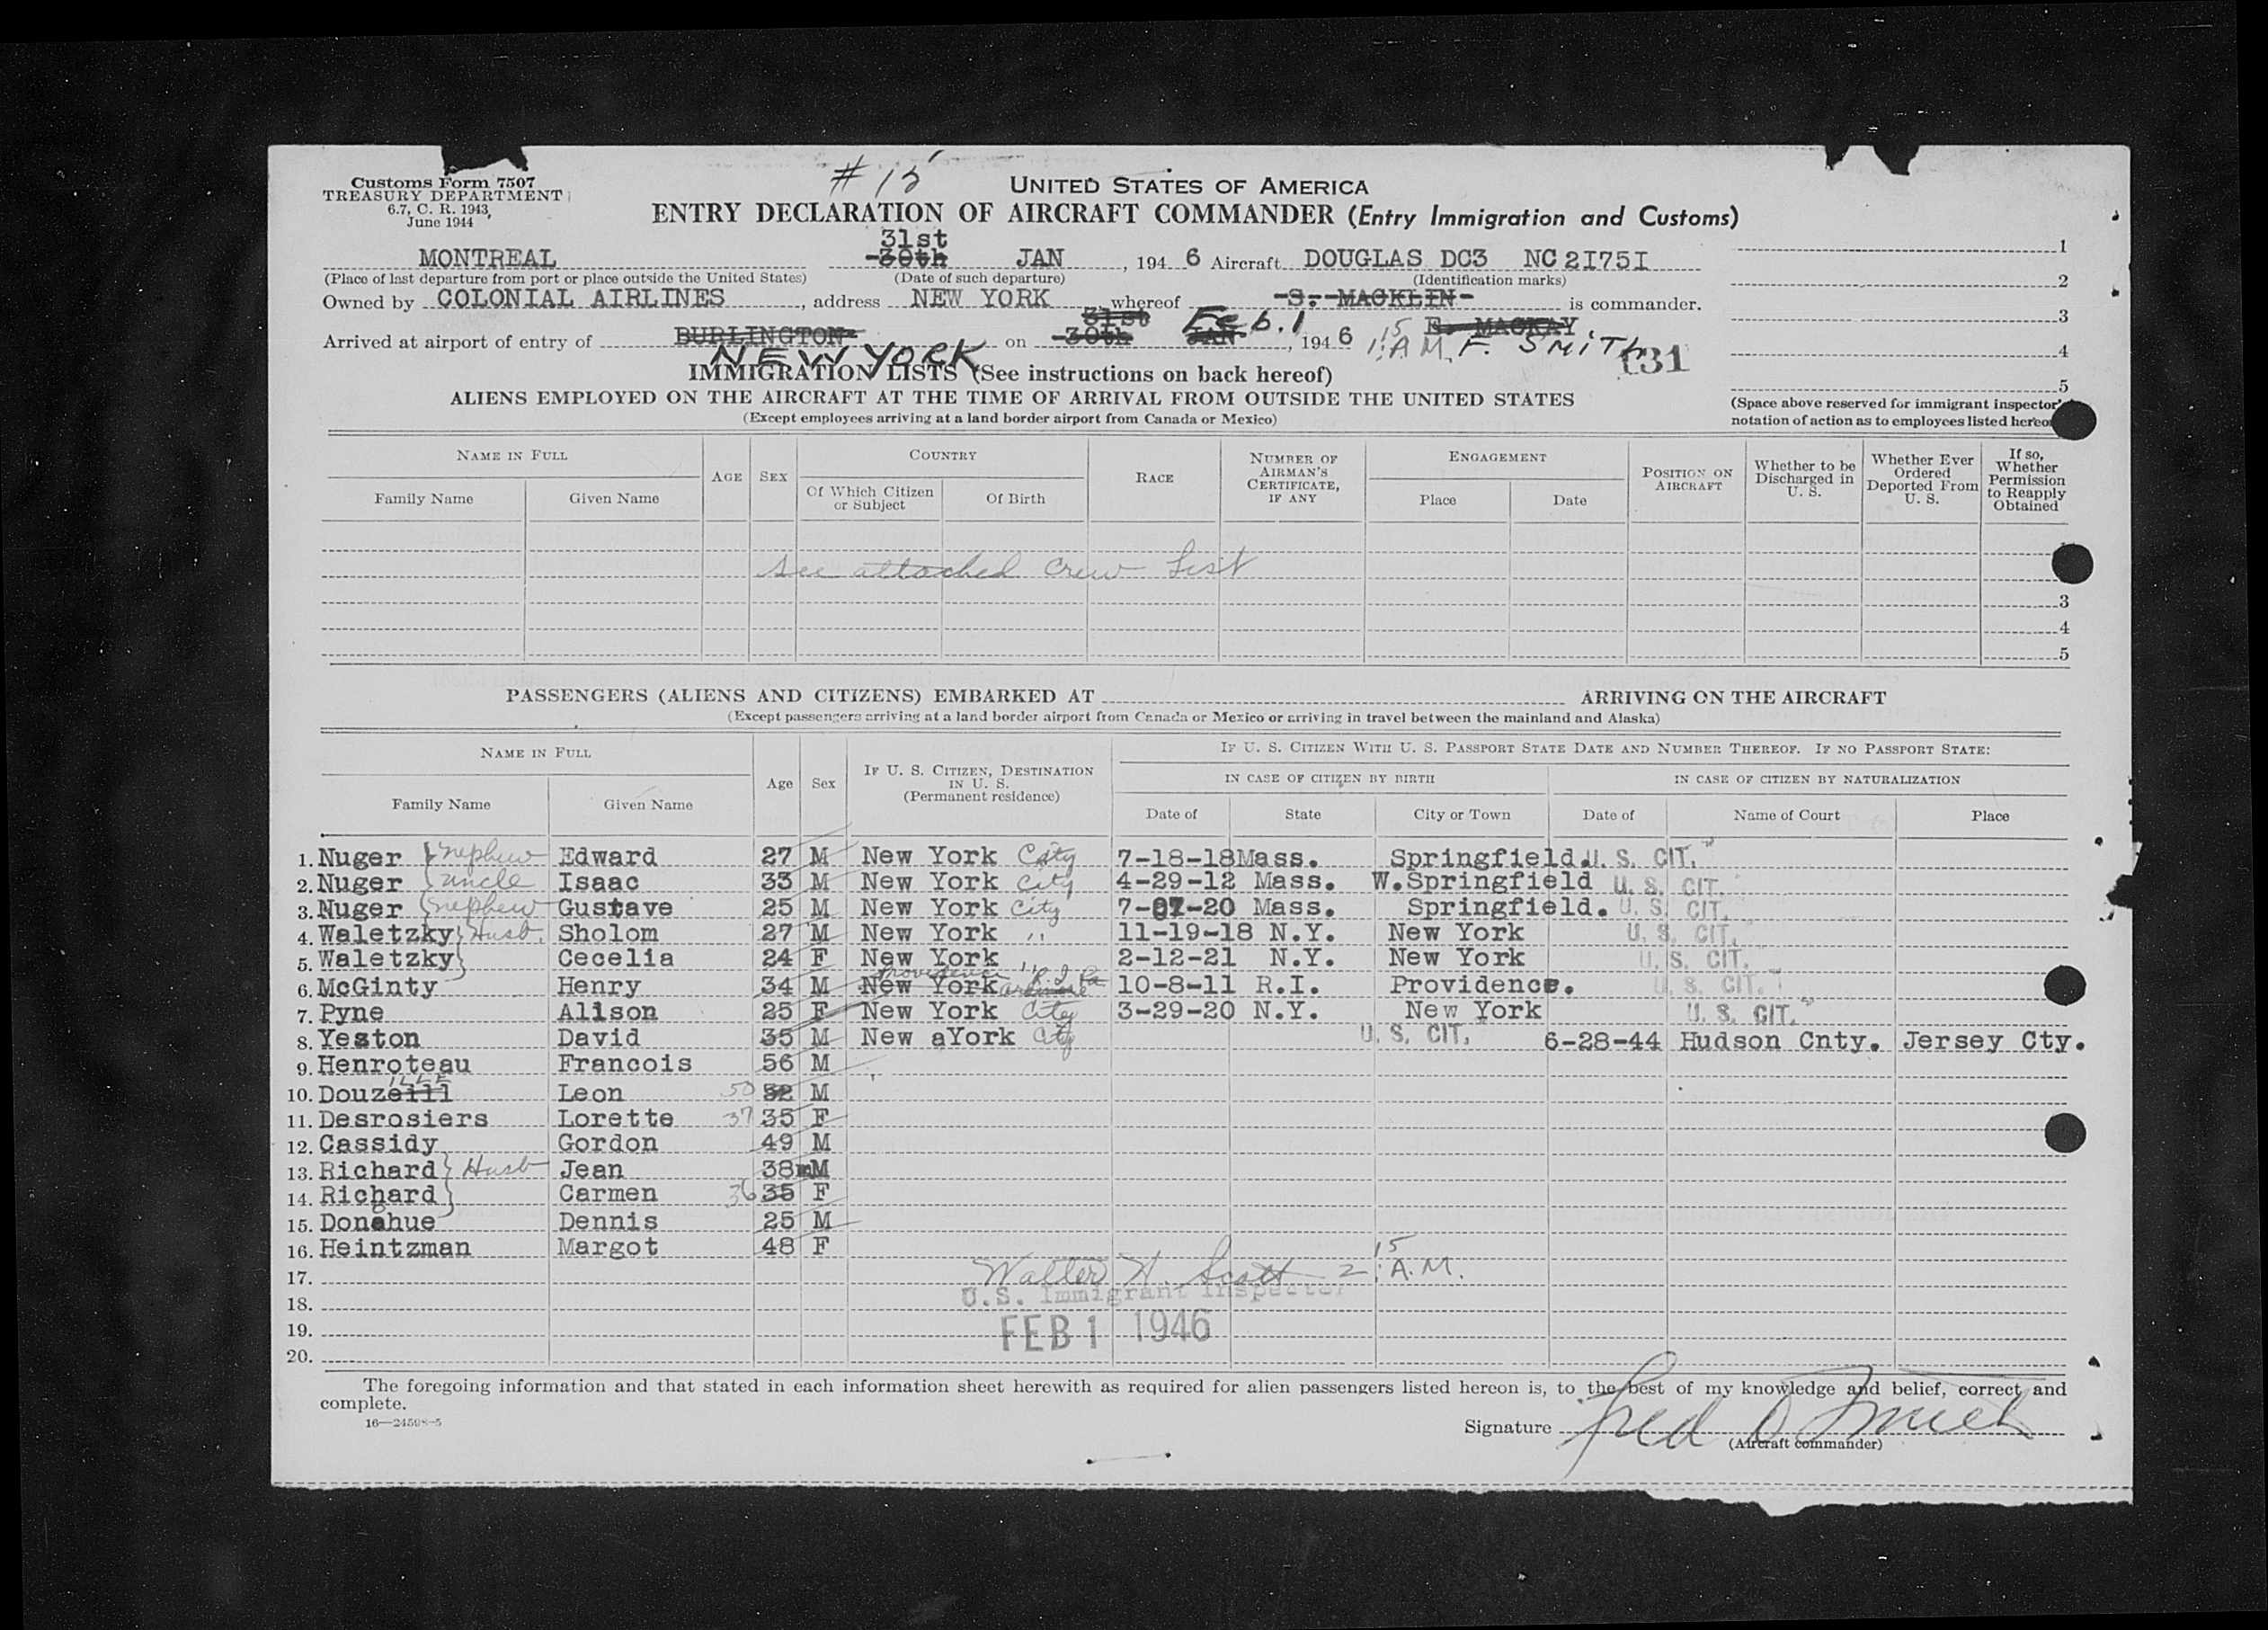 # 15
Customs Form 7507
TREASURY DEPARTMENT
6.7, C. R. 1943,
June 1944
UNITED STATES OF AMERICA
ENTRY DECLARATION OF AIRCRAFT COMMANDER (Entry Immigration and Customs)
31st
MONTREAL 30th JAN, 194 6 Aircraft DOUGLAS DC3 NC2I75I 1
(Place of last departure from port or place outside the United States) (Date of such departure) (Identification marks) 2
Owned by COLONIAL AIRLINES, address NEW YORK whereof S. MACKLIN is commander.
3
31st Feb. 1 15 E. MACKAY
Arrived at airport of entry of BURLINGTON on 30th JAN, 194 6 1: A M. F. SMITH 4
NEW YORK 131
IMMIGRATION LISTS (See instructions on back hereof)
5
ALIENS EMPLOYED ON THE AIRCRAFT AT THE TIME OF ARRIVAL FROM OUTSIDE THE UNITED STATES
(Except employees arriving at a land border airport from Canada or Mexico)
(Space above reserved for immigrant inspector's
notation of action as to employees listed hereon
NAME IN FULL AGE SEX COUNTRY RACE NUMBER OF AIRMAN'S CERTIFICATE, IF ANY ENGAGEMENT POSITION ON AIRCRAFT Whether to be Discharged in U. S. Whether Ever Ordered Deported From U. S. If so, Whether Permission to Reapply Obtained
Family Name Given Name Of Which Citizen or Subject Of Birth Place Date
See attached Crew List
3
4
5
PASSENGERS (ALIENS AND CITIZENS) EMBARKED AT ARRIVING ON THE AIRCRAFT
(Except passengers arriving at a land border airport from Canada or Mexico or arriving in travel between the mainland and Alaska)
NAME IN FULL Age Sex IF U. S. CITIZEN, DESTINATION IN U. S. (Permanent residence) IF U. S. CITIZEN WITH U. S. PASSPORT STATE DATE AND NUMBER THEREOF. IF NO PASSPORT STATE:
IN CASE OF CITIZEN BY BIRTH IN CASE OF CITIZEN BY NATURALIZATION
Family Name Given Name Date of State City or Town Date of Name of Court Place
1. Nuger nephew Edward 27 M New York City 7-18-18 Mass. Springfield. U. S. CIT.
2. Nuger uncle Isaac 33 M New York City 4-29-12 Mass. W.Springfield U. S. CIT.
3. Nuger nephew Gustave 25 M New York City 7-07-20 Mass. Springfield. U. S. CIT.
4. Waletzky Husb. Sholom 27 M New York " 11-19-18 N.Y. New York U. S. CIT.
5. Waletzky Cecelia 24 F New York " 2-12-21 N.Y. New York U. S. CIT.
Providence R I
6. McGinty Henry 34 M New York 10-8-11 R.I. Providence. U. S. CIT.
7. Pyne Alison 25 F New York City 3-29-20 N.Y. New York U. S. CIT.
8. Yeston David 35 M New aYork City U. S. CIT. 6-28-44 Hudson Cnty. Jersey Cty.
9. Henroteau Francois 56 M
ILLE
10. Douzeill Leon 50 52 M
11. Desrosiers Lorette 37 35 F
12. Cassidy Gordon 49 M
13. Richard Husb Jean 38 M
14. Richard Carmen 36 35 F
15. Donahue Dennis 25 M
16. Heintzman Margot 48 F
17. Walter H. Scott 2:15 A.M.
18. U.S. Immigrant Inspector
19. FEB 1 1946
20.
The foregoing information and that stated in each information sheet herewith as required for alien passengers listed hereon is, to the best of my knowledge and belief, correct and
complete.
16—24598-5
Signature Fred D Smith
(Aircraft commander)